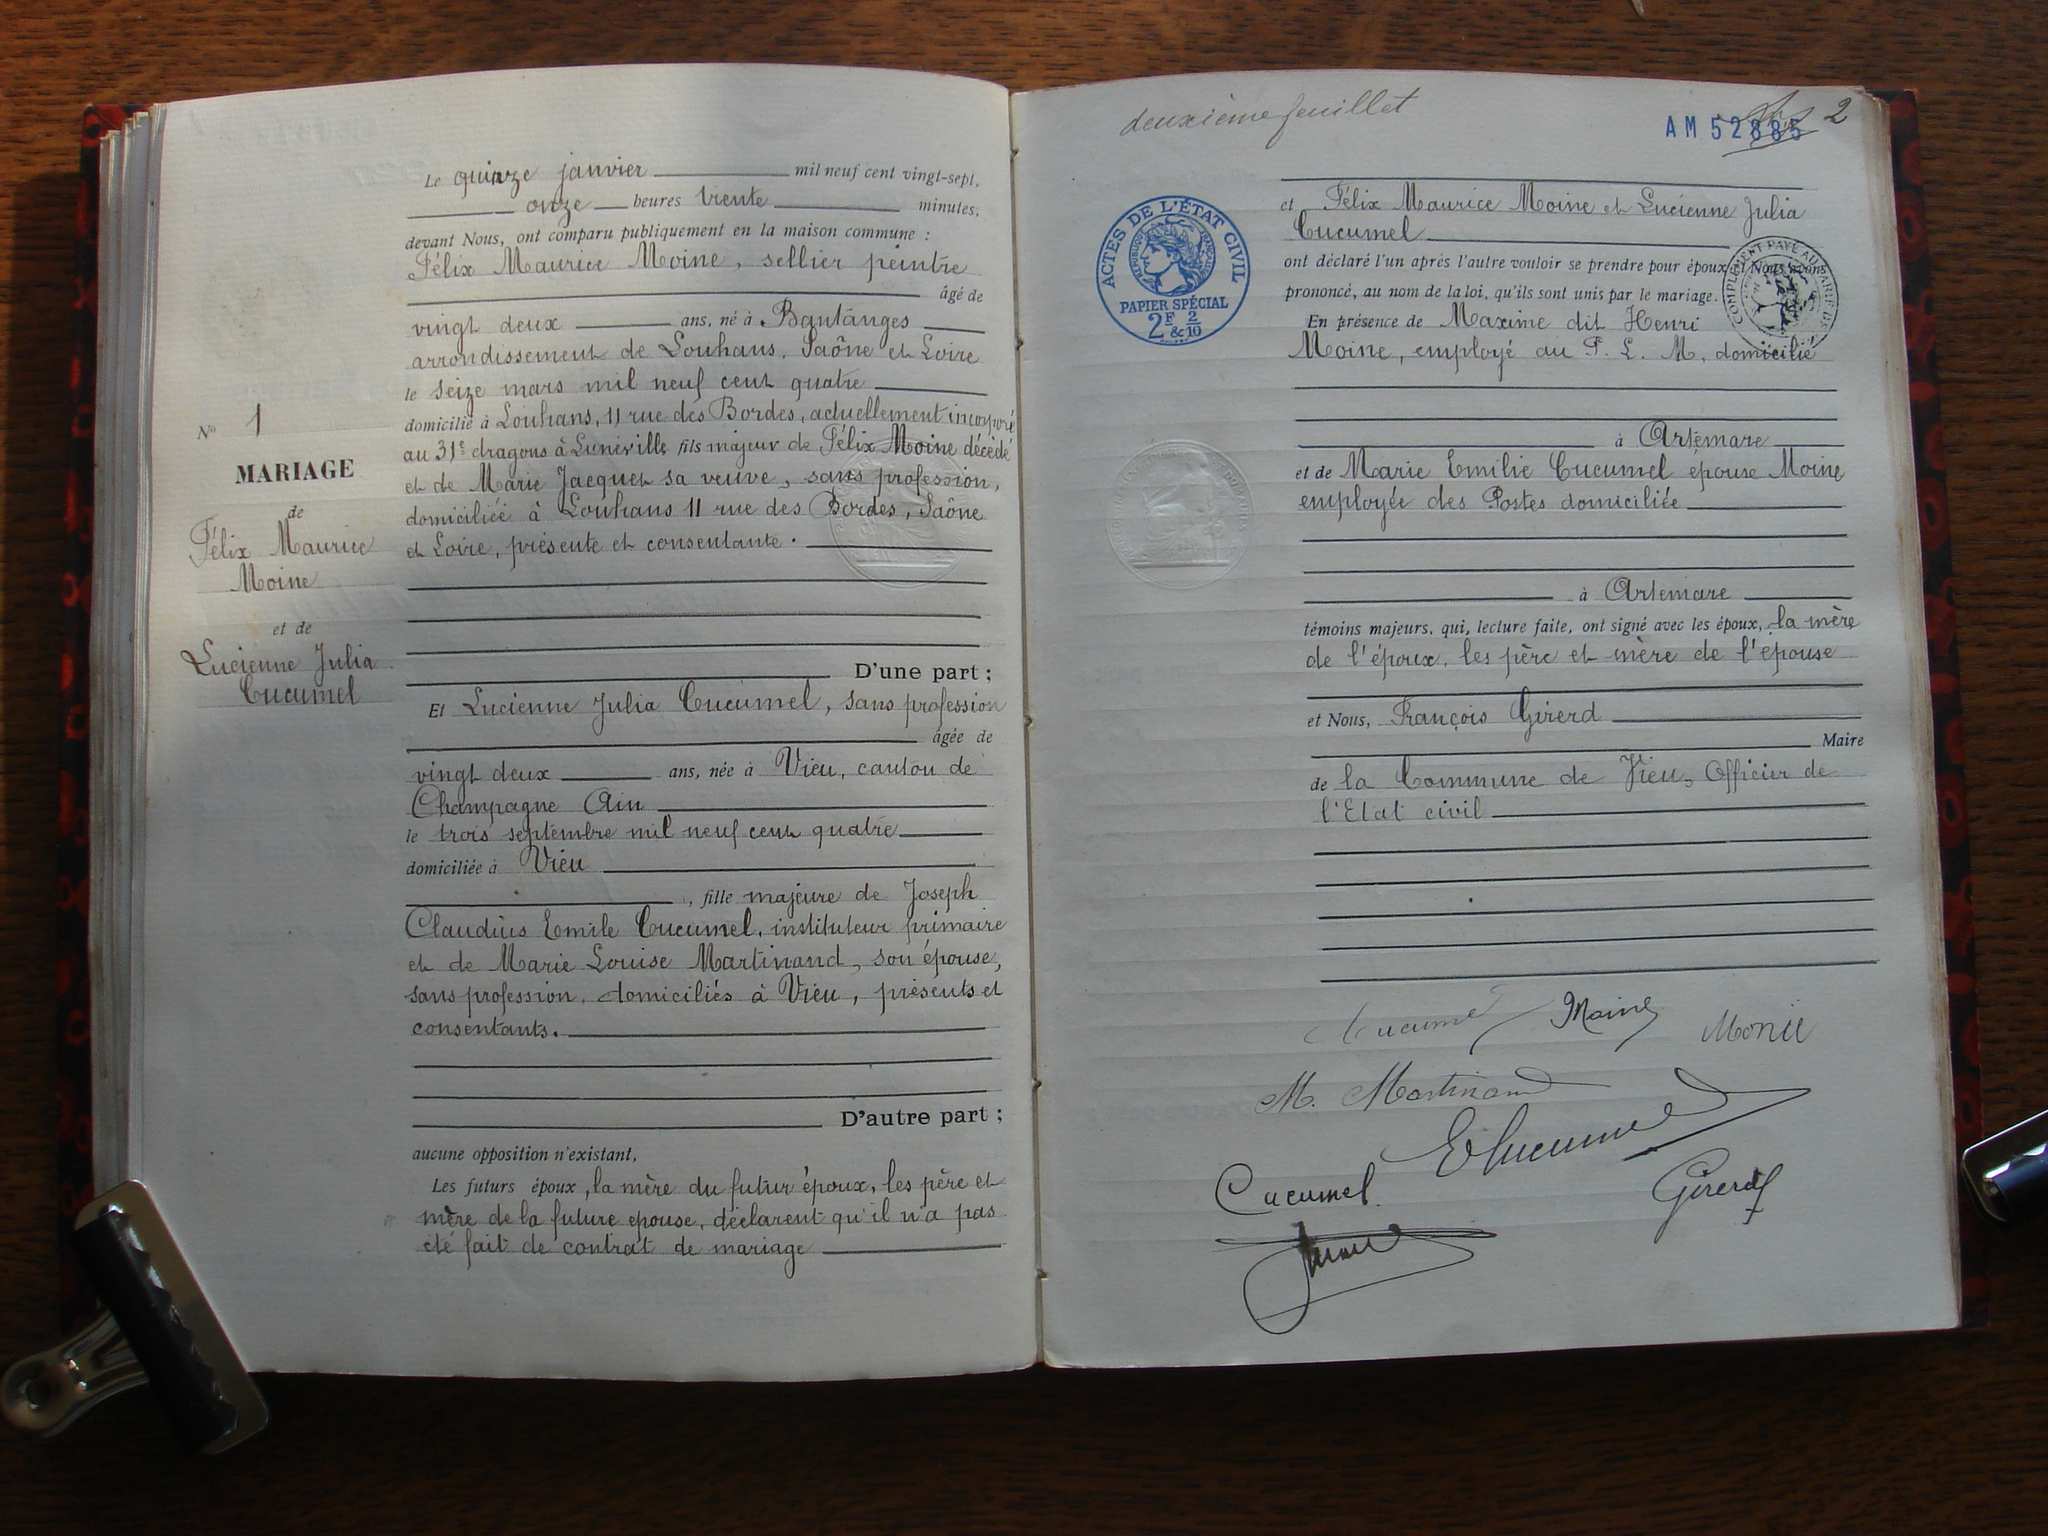 Le quinze janvier mil neuf cent vingt-sept,
onze heures trente minutes,
devant Nous, ont comparu publiquement en la maison commune :
Félix Maurice Moine, sellier peintre
âgé de
vingt deux ans, né à Bantanges
arrondissement de Louhans, Saône et Loire
le seize mars mil neuf cent quatre
domicilié à Louhans, 11 rue des Bordes, actuellement incorporé
au 31e dragons à Lunéville fils majeur de Félix Moine décédé
et de Marie Jacquet sa veuve, sans profession,
domiciliée à Louhans 11 rue des Bordes, Saône
et Loire, présente et consentante.
D'une part ;
Et Lucienne Julia Cucumel, sans profession
âgée de
vingt deux ans, née à Vieu, canton de
Champagne Ain
le trois septembre mil neuf cent quatre
domiciliée à Vieu
, fille majeure de Joseph
Claudius Emile Cucumel, instituteur primaire
et de Marie Louise Martinand, son épouse,
sans profession, domiciliés à Vieu, présents et
consentants.
D'autre part ;
aucune opposition n'existant,
Les futurs époux, la mère du futur époux, les père et
mère de la future epouse, déclarent qu'il n'a pas
été fait de contrat de mariage
No 1
MARIAGE
de
Félix Maurice
Moine
et de
Lucienne Julia
Cucumel
deuxième feuillet
AM 52885 2
ACTES DE L'ÉTAT CIVIL
RÉPUBLIQUE FRANÇAISE
PAPIER SPÉCIAL
2F 2
&10
et Félix Maurice Moine et Lucienne Julia
Cucumel
ont déclaré l'un après l'autre vouloir se prendre pour époux et Nous avons
prononcé, au nom de la loi, qu'ils sont unis par le mariage.
COMPLÉMENT PAYÉ AU
En présence de Maxime dit Henri
Moine, employé au P. L. M, domicilié
à Artemare
et de Marie Emilie Cucumel épouse Moine
employée des Postes domiciliée
à Artemare
témoins majeurs, qui, lecture faite, ont signé avec les époux, la mère
de l'époux, les père et mère de l'épouse
et Nous, François Girerd
Maire
de la Commune de Vieu, Officier de
l'Etat civil
Cucumel Moine Monie
M. Martinand
E Cucumel
Cucumel. Girerd